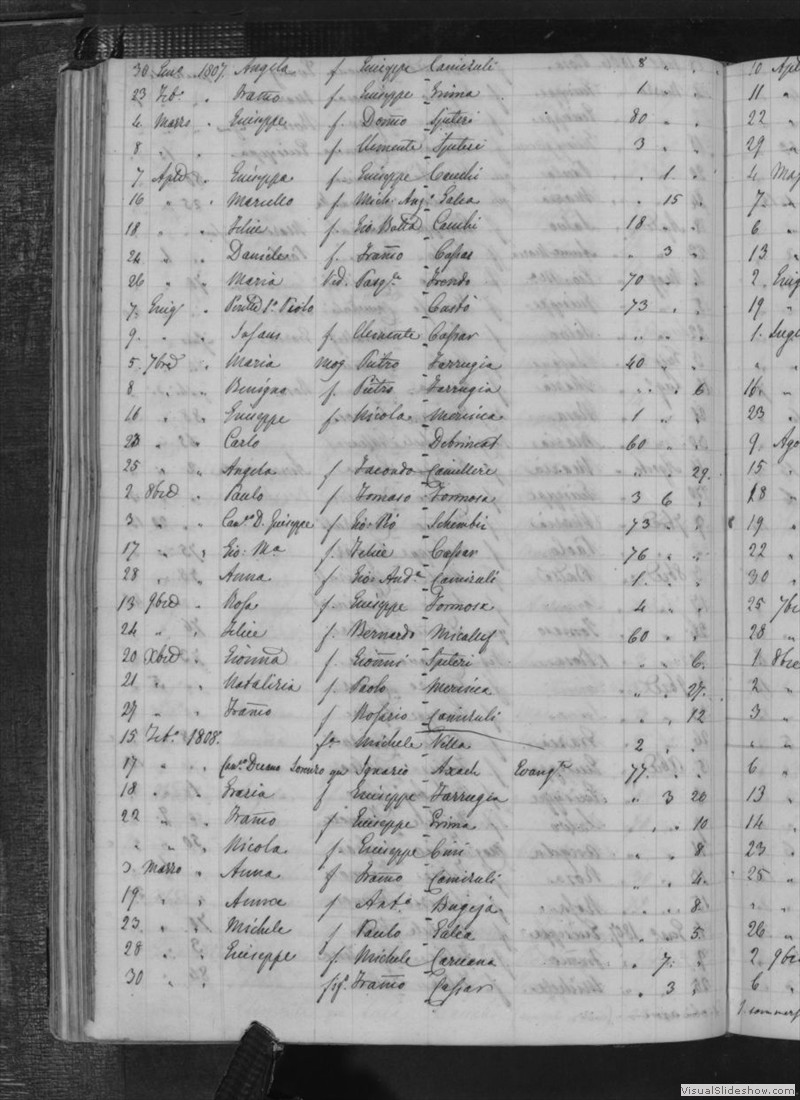 30 Genº 1807 Angela f Giuseppe Camisuli 8 " "
23 Febº " Franco f Giuseppe Grima 1 " "
4 Marzo " Giuseppe f. Domco Spiteri 80 " "
8 " " f. Clemente Spiteri 3 " "
7 Aple " Giuseppa f. Giuseppe Cauchi " 1 "
16 " " Mariello f Mich: Angº Galea " 15 "
18 " " Felice f. Gio: Batta Cauchi 18 " "
24 " " Daniele f. Franco Cassar " 3 "
26 " " Maria Ved. Pasqle 70 " "
7 Giug " Sn. Paolo Custò 73 " "
9 " " Infans f. Clemente Cassar " " "
5 7bre " Maria mog Pietro Farrugia 40 " "
8 " " Benigna f. Pietro Farrugia " " 6
16 " " Giuseppe f. Nicola Mersieca 1 " "
23 " " Carlo Debrincat 60 " "
25 " " Angela f Facondo Camilleri " " 29
2 8bre " Paulo f Tomaso Formosa 3 6 "
3 " " Canco D. Giuseppe f Gio: Schembri 73 " "
17 " " Gio: Ma f. Felice Cassar 76 " "
28 " " Anna f. Gio: Andª Camisuli 1 " "
13 9bre " Rosa f. Giuseppe Formosa 4 " "
24 " " Felice f. Bernardo Micalef 60 " "
20 Xbre " Gionna f. Gionni Spiteri " " 6
21 " " Natalizia f. Paolo Mersieca " " 27
29 " " Franco f Rosario Camisuli " " 12
15 Febº 1808. fo Michele Vella 2 " "
17 " " Canco Decano qm Ignazio Axach Evangta 77 " "
18 " " Grazia f Giuseppe Farrugia " 3 20
22 " " Franco f. Giuseppe Grima " " 10
" " " Nicola f. Giuseppe Cini " " 8
3 Marzo " Anna f Franco Camisuli " " 4
19 " " Annica f Antº Bugeja " " 8
23 " " Michele f Paulo Galea " " 5
28 " " Giuseppe f Michele Caruana " 7 "
30 " " figº Franco Cassar " 3 "
10 Aple
11 "
22 "
29 "
4 Mag
7 "
6 "
13 "
2 Giug
19 "
1 Lugl
" "
16 "
23 "
9 Ago
15 "
18 "
19 "
22 "
30 "
25 7br
28 "
1 8bre
2 "
3 "
" "
6 "
13 "
14 "
23 "
25 "
" "
26 "
2 9bre
6 "
VisualSlideshow.com